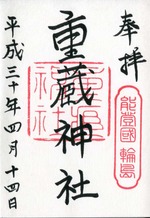 奉拝
能登國 輪島
重蔵神社
平成三十年四月十四日